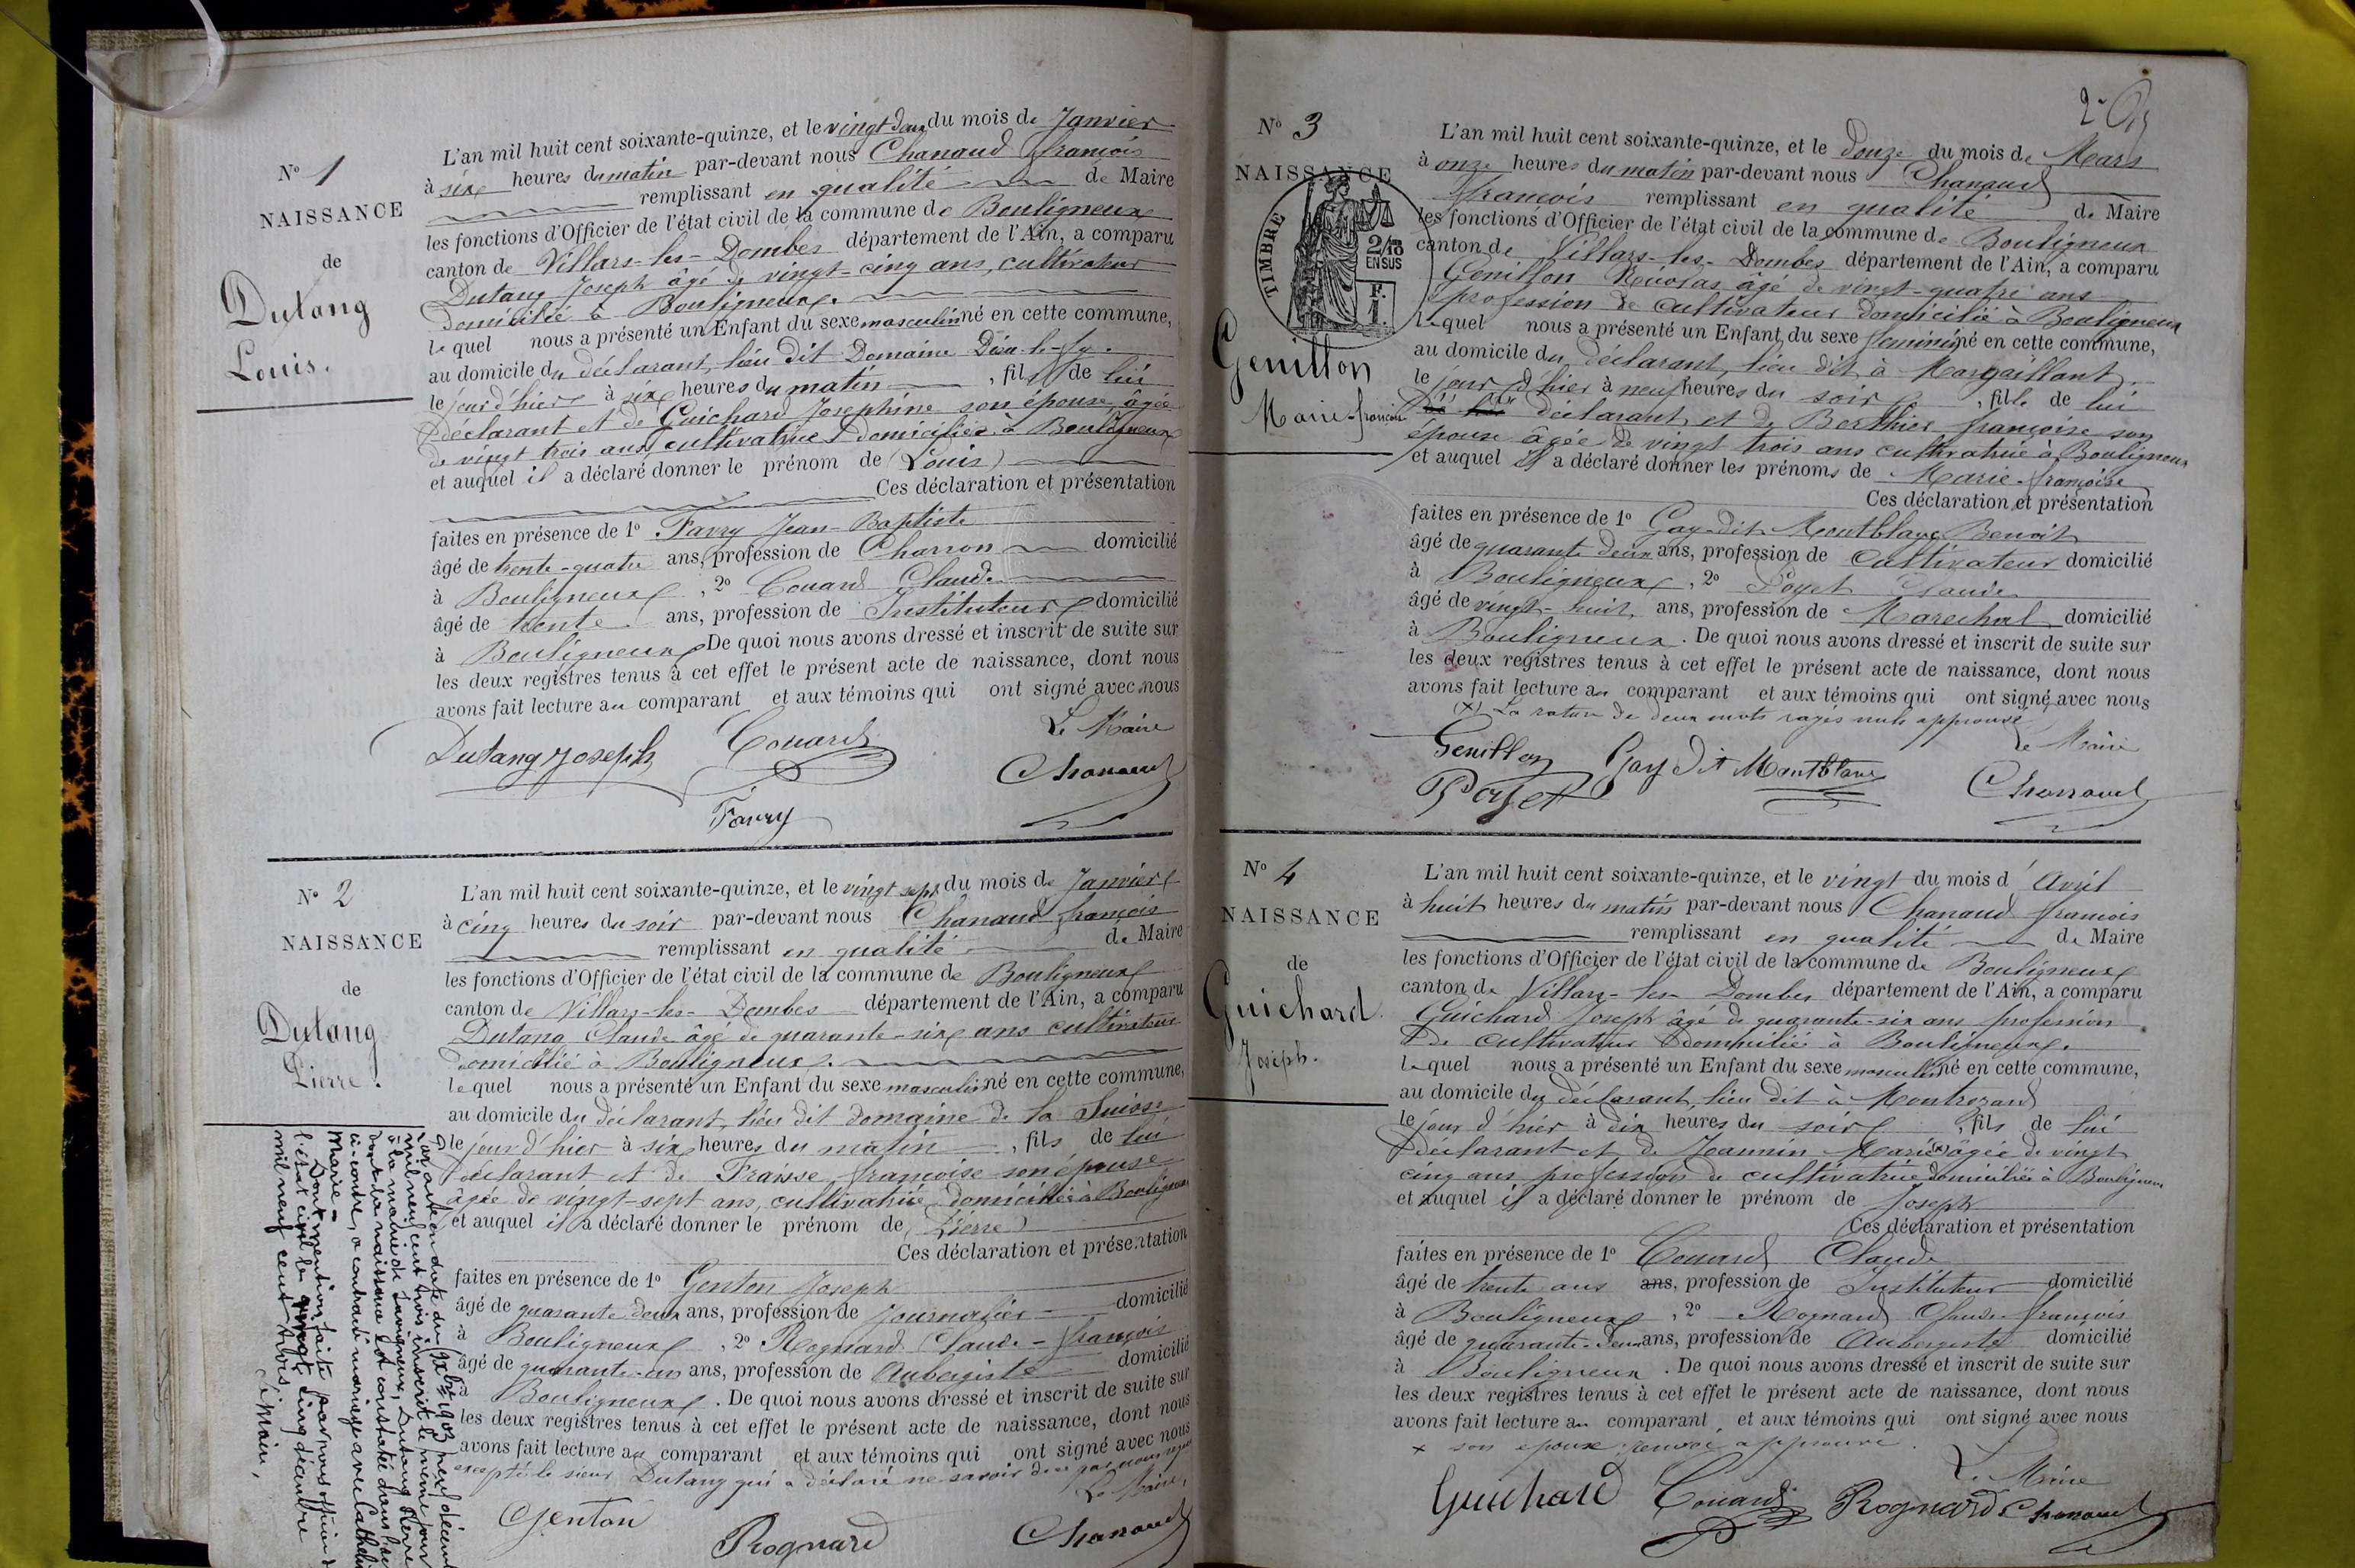 N° 1
NAISSANCE
de
Dutang
Louis.
L'an mil huit cent soixante-quinze, et le vingt deux du mois de Janvier
à six heures du matin par-devant nous Chanaud françois
remplissant en qualité de Maire
les fonctions d'Officier de l'état civil de la commune de Bouligneux
canton de Villars-les-Dombes département de l'Ain, a comparu
Dutang Joseph âgé de vingt-cinq ans, cultivateur
domicilié à Bouligneux.
lequel nous a présenté un Enfant du sexe masculin né en cette commune,
au domicile du déclarant, lieu dit Domaine
le jour d'hier à six heures du matin, fils de lui
déclarant et de Guichard Josephine son épouse, âgée
de vingt trois ans, cultivatrice domiciliée à Bouligneux
et auquel il a déclaré donner le prénom de (Louis)
Ces déclaration et présentation
faites en présence de 1° Favry Jean-Baptiste
âgé de trente-quatre ans, profession de Charron domicilié
à Bouligneux, 2° Couard Claude
âgé de trente ans, profession de Instituteur domicilié
à Bouligneux De quoi nous avons dressé et inscrit de suite sur
les deux registres tenus à cet effet le présent acte de naissance, dont nous
avons fait lecture au comparant et aux témoins qui ont signé avec nous
Le Maire
Dutang Joseph Couard Chanaud
Favry
N° 2
NAISSANCE
de
Dutang
Pierre.
L'an mil huit cent soixante-quinze, et le vingt sept du mois de Janvier
à cinq heures du soir par-devant nous Chanaud françois
remplissant en qualité de Maire
les fonctions d'Officier de l'état civil de la commune de Bouligneux
canton de Villars-les-Dombes département de l'Ain, a comparu
Dutang Claude âgé de quarante-six ans cultivateur
domicilié à Bouligneux.
lequel nous a présenté un Enfant du sexe masculin né en cette commune,
au domicile du déclarant, lieu dit domaine de la Suisse
le jour d'hier à six heures du matin, fils de lui
déclarant et de Fraisse françoise son épouse
âgée de vingt-sept ans, cultivatrice domiciliée à Bouligneux
et auquel il a déclaré donner le prénom de (Pierre)
Ces déclaration et présentation
faites en présence de 1° Genton Joseph
âgé de quarante deux ans, profession de Journalier domicilié
à Bouligneux, 2° Rognard Claude-françois
âgé de quarante-un ans, profession de Aubergiste domicilié
à Bouligneux. De quoi nous avons dressé et inscrit de suite sur
les deux registres tenus à cet effet le présent acte de naissance, dont nous
avons fait lecture au comparant et aux témoins qui ont signé avec nous
excepté le sieur Dutang qui a déclaré ne savoir
Le Maire,
Genton Rognard Chanaud
Par acte en date du 9 Xbre 1903 neuf décembre
mil neuf cent trois inscrit le même jour
à la mairie de Savigneux, Dutang Pierre
dont la naissance est constatée dans l'acte
ci-contre, a contracté mariage avec
Marie
Dont mention faite par nous officier de
l'état civil le vingt cinq décembre
mil neuf cent trois.
Le Maire,
N° 3
NAISSANCE
TIMBRE
2/10
EN SUS
F.
1.
Genillon
Marie-françoise
L'an mil huit cent soixante-quinze, et le douze du mois de Mars
à onze heures du matin par-devant nous Chanaud
françois remplissant en qualité de Maire
les fonctions d'Officier de l'état civil de la commune de Bouligneux
canton de Villars-les-Dombes département de l'Ain, a comparu
Genillon Nicolas âgé de vingt-quatre ans
profession de cultivateur domicilié à Bouligneux
lequel nous a présenté un Enfant du sexe feminin né en cette commune,
au domicile du déclarant, lieu dit à Margaillant
le jour d'hier à neuf heures du soir, fille de lui
déclarant, et de Berthier françoise son
épouse âgée de vingt trois ans cultivatrice à Bouligneux
et auquel il a déclaré donner les prénoms de Marie-françoise
Ces déclaration et présentation
faites en présence de 1° Gay-dit Montblanc Benoît
âgé de quarante deux ans, profession de Cultivateur domicilié
à Bouligneux, 2° Poyet Claude
âgé de vingt-huit ans, profession de Marechal domicilié
à Bouligneux. De quoi nous avons dressé et inscrit de suite sur
les deux registres tenus à cet effet le présent acte de naissance, dont nous
avons fait lecture au comparant et aux témoins qui ont signé avec nous
(x) La rature de deux mots rayés nuls approuvé
Le Maire
Genillon Gay dit Montblanc
Poyet Chanaud
N° 4
NAISSANCE
de
Guichard
Joseph.
L'an mil huit cent soixante-quinze, et le vingt du mois d'Avril
à huit heures du matin par-devant nous Chanaud françois
remplissant en qualité de Maire
les fonctions d'Officier de l'état civil de la commune de Bouligneux
canton de Villars-les-Dombes département de l'Ain, a comparu
Guichard Joseph âgé de quarante-six ans profession
de cultivateur domicilié à Bouligneux.
lequel nous a présenté un Enfant du sexe masculin né en cette commune,
au domicile du déclarant, lieu dit à Montrozard
le jour d'hier à dix heures du soir, fils de lui
déclarant et de Jeannin Marie (x) âgée de vingt
cinq ans, profession de cultivatrice domiciliée à Bouligneux
et auquel il a déclaré donner le prénom de Joseph
Ces déclaration et présentation
faites en présence de 1° Couard Claude
âgé de trente ans ans, profession de Instituteur domicilié
à Bouligneux, 2° Rognard Claude-françois
âgé de quarante-deux ans, profession de Aubergiste domicilié
à Bouligneux. De quoi nous avons dressé et inscrit de suite sur
les deux registres tenus à cet effet le présent acte de naissance, dont nous
avons fait lecture au comparant et aux témoins qui ont signé avec nous
x son épouse renvoi approuvé.
Le Maire
Guichard Couard Rognard Chanaud